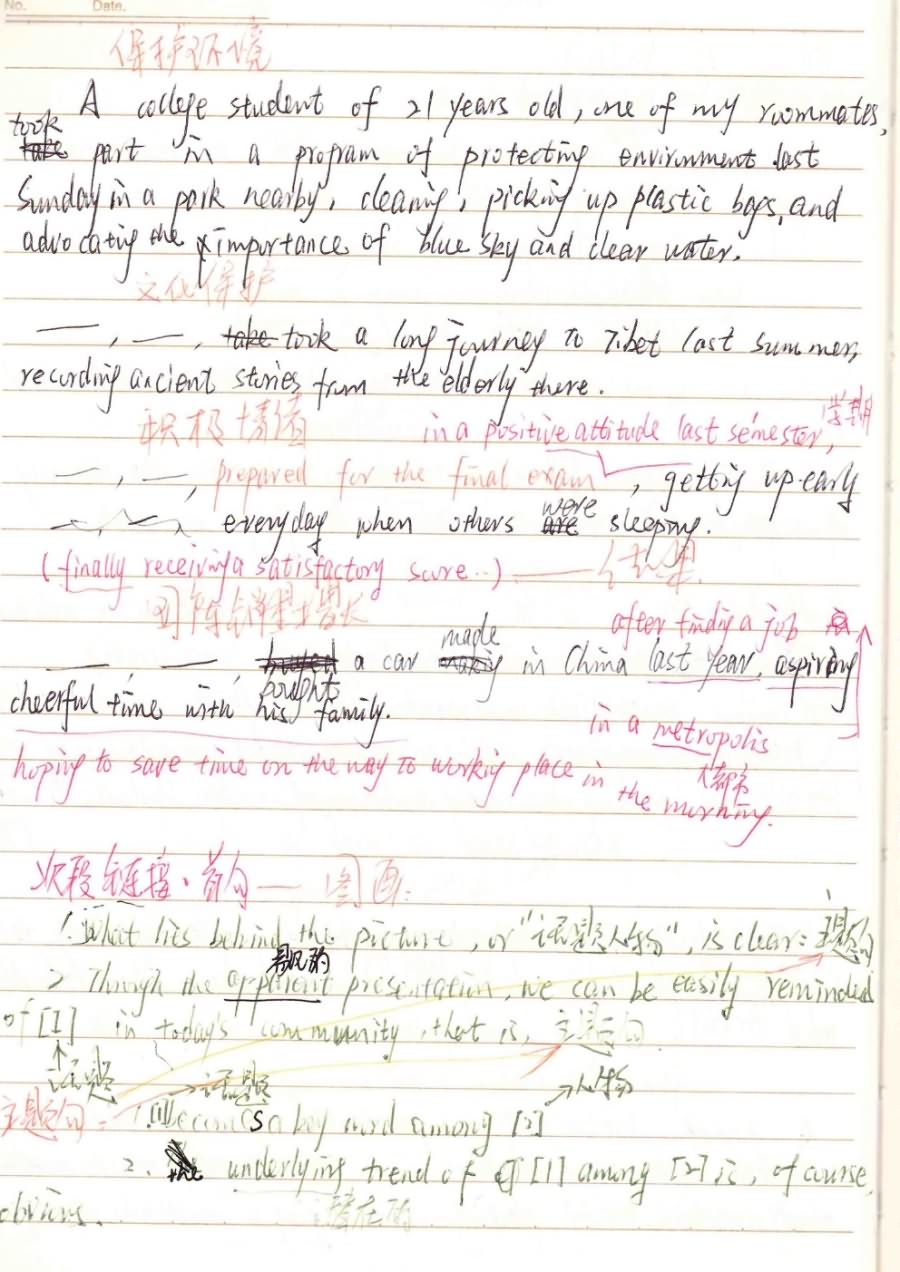 No. Date.
保护环境
A college student of 21 years old, one of my roommates,
took
take part in a program of protecting environment last
Sunday in a park nearby, cleaning, picking up plastic bags, and
advocating the importance of blue sky and clear water.
文化保护
—, —, take took a long journey to Tibet last summer,
recording ancient stories from the elderly there.
积极情绪 in a positive attitude last semester, 学期
—, —, prepared for the final exam, getting up early
were
everyday when others are sleeping.
(finally receiving a satisfactory score..) —— 结果
after finding a job
made
—, —, a car making in China last year, aspiring
bought
cheerful time with his family.
in a metropolis
大都市
hoping to save time on the way to working place in the morning.
次段链接·首句 — 图画:
1. What lies behind the picture, or "话题人物", is clear: 主题句
表现的
2 Though the apparent presentation, we can be easily reminded
of [1] in today's community, that is, 主题句
话题 →话题 →人物
主题句: 1. [1] becomes a key word among [2]
2. the underlying trend of [1] among [2] is, of course,
obvious. 潜在的